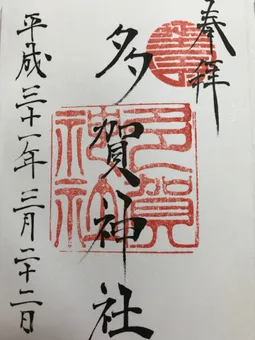 奉拝
多賀神社
平成三十一年三月二十二日
多賀神社